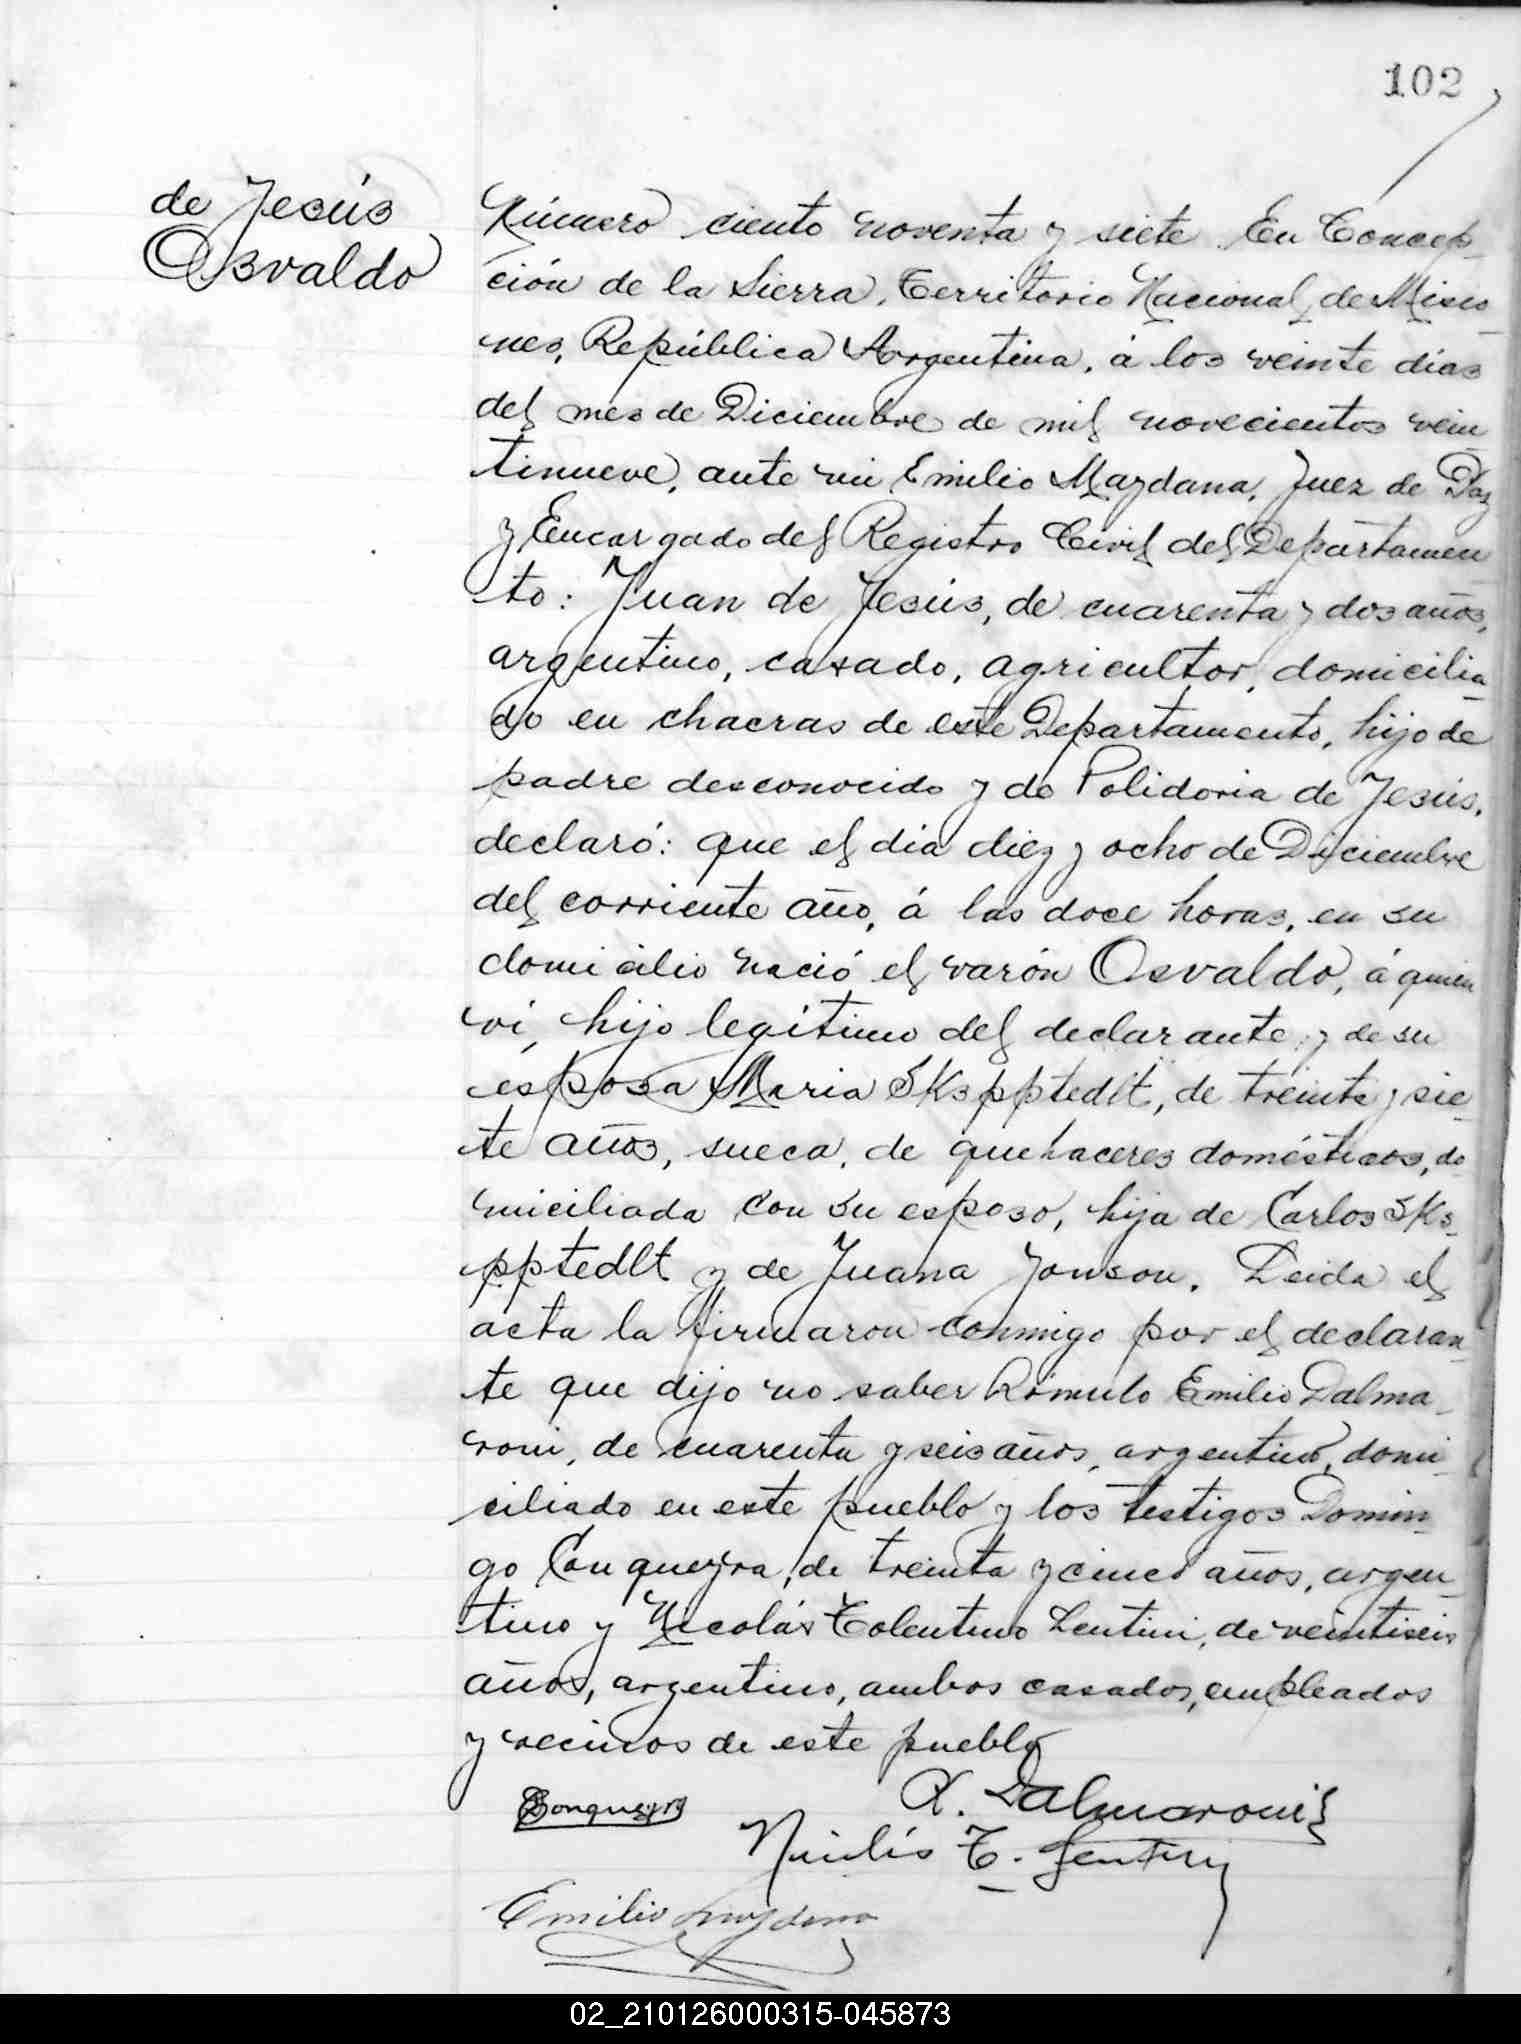 102
de Jesús
Osvaldo
Número ciento noventa y siete. En Concep-
ción de la Sierra, Territorio Nacional de Misio-
nes, República Argentina, á los veinte días
del mes de Diciembre de mil novecientos vein
tinueve, ante mi Emilio Maydana, Juez de Paz
y Encargado del Registro Civil del Departamen
to: Juan de Jesús, de cuarenta y dos años,
argentino, casado, agricultor, domicilia-
do en chacras de este Departamento, hijo de
padre desconocido y de Polidoria de Jesús,
declaró: que el día diez y ocho de Diciembre
del corriente año, á las doce horas, en su
domicilio nació el varón Osvaldo, á quien
ví, hijo legítimo del declarante y de su
esposa Maria Skspptedlt, de treinta y sie-
te años, sueca, de quehaceres domésticos, do
miciliada con su esposo, hija de Carlos Sks-
pptedlt y de Juana Jonson. Leida el
acta la firmaron conmigo por el declaran-
te que dijo no saber Rómulo Emilio Dalma-
roni, de cuarenta y seis años, argentino, domi-
ciliado en este pueblo y los testigos Domin-
go Conqueyra, de treinta y cinco años, argen-
tino y Nicolás Tolentino Lentini, de veintiseis
años, argentino, ambos casados, empleados
y vecinos de este pueblo
DConqueyra
R. Dalmaroni
Nicolás T. Lentini
Emilio Maydana
02_210126000315-045873